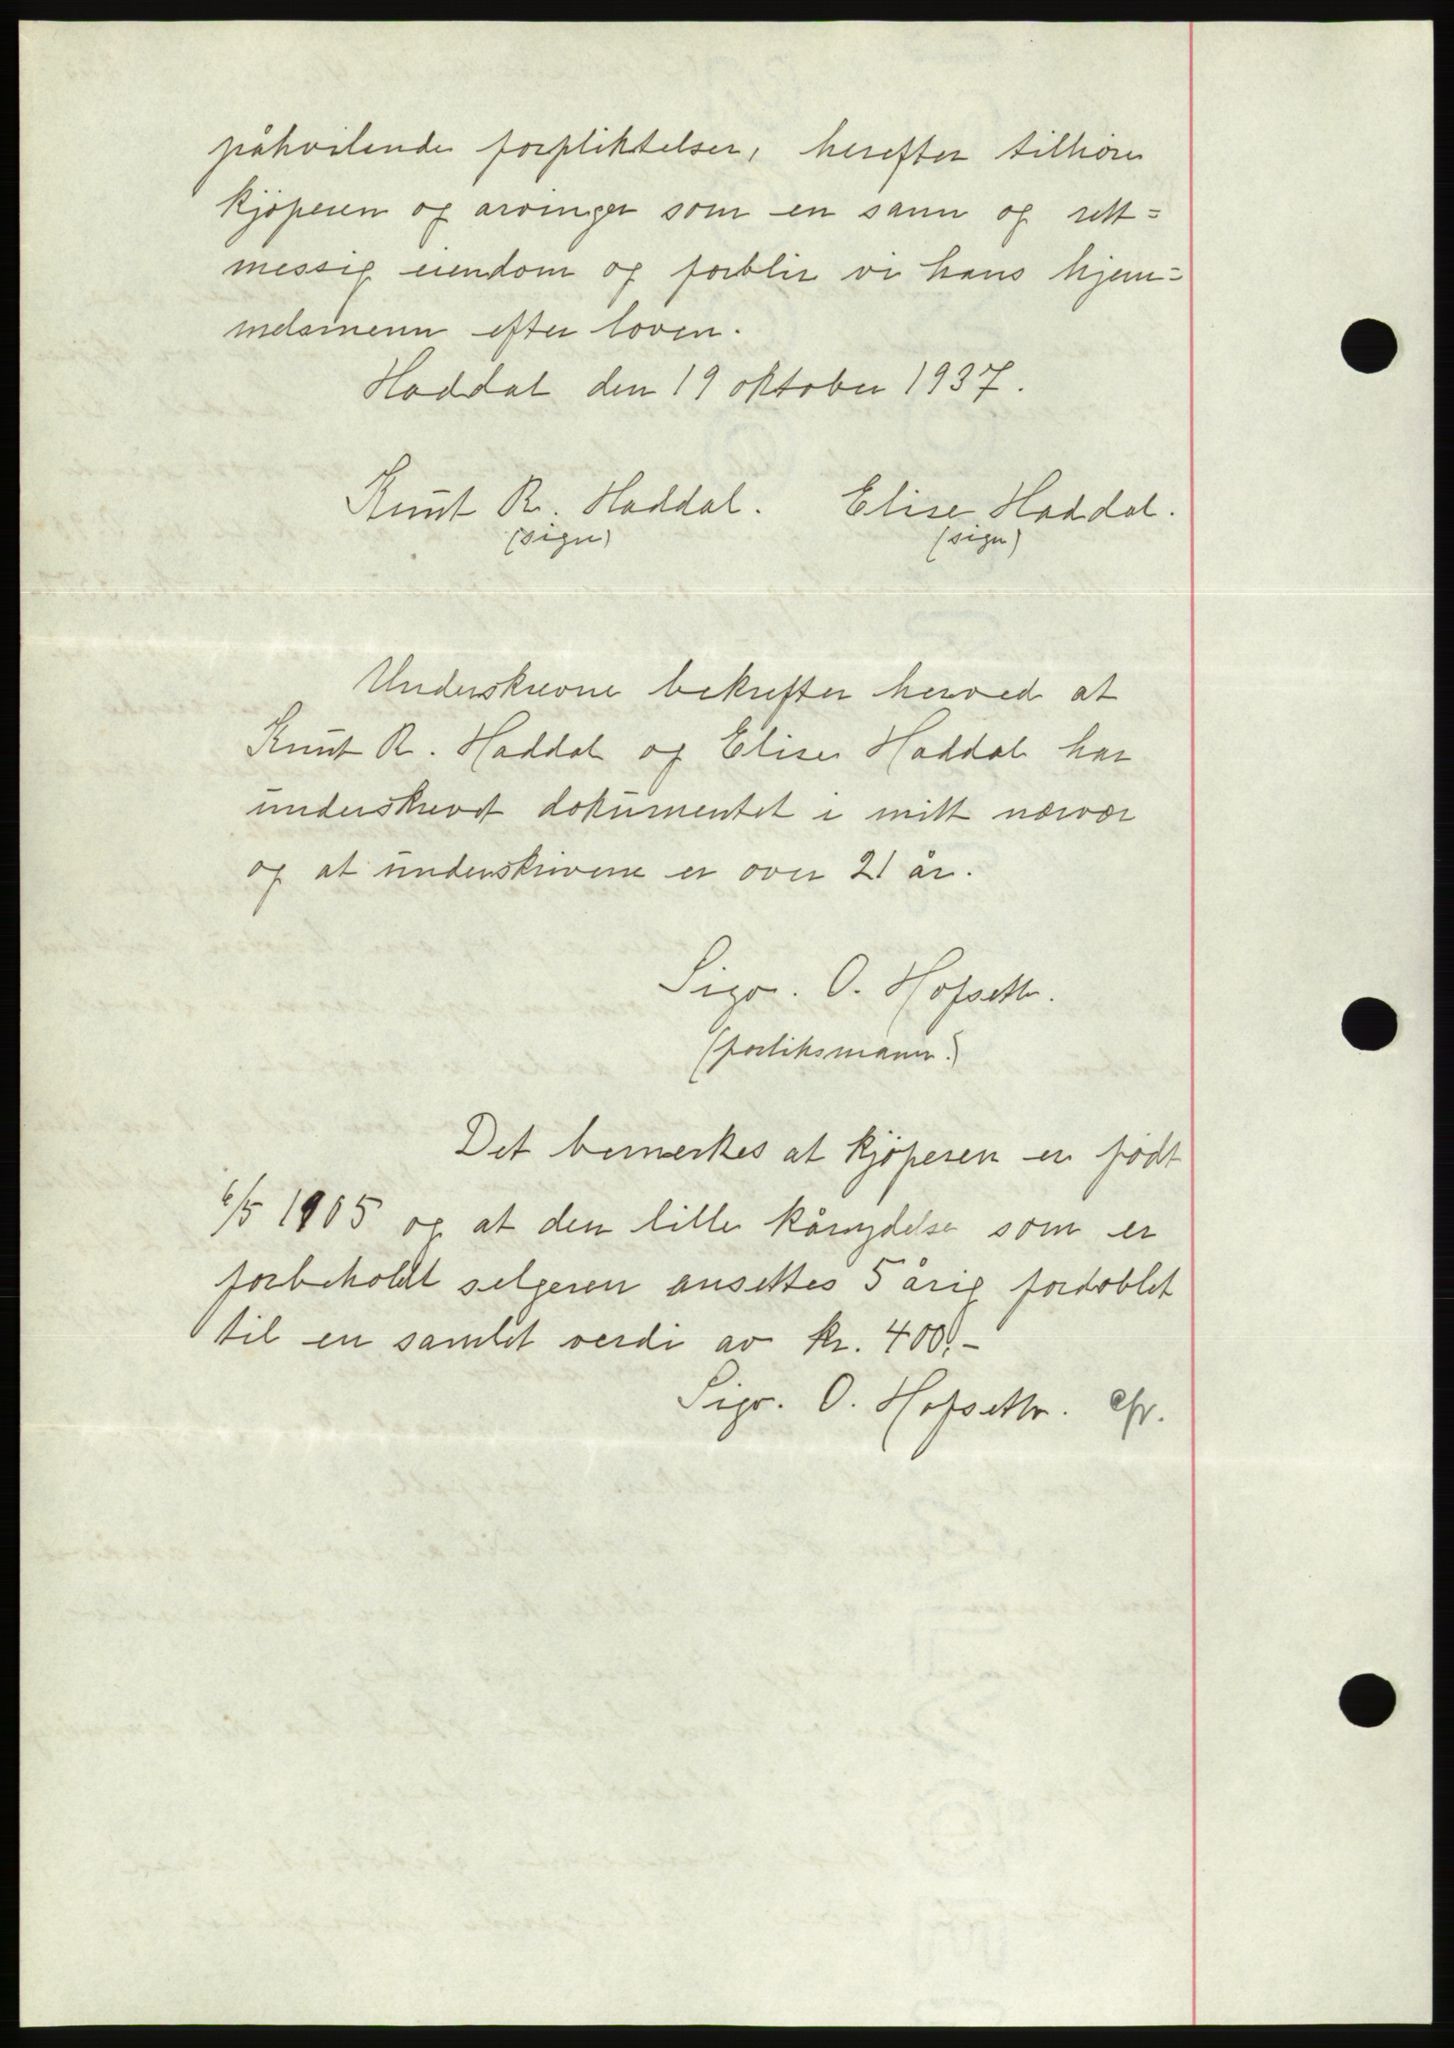 påhvilende forpliktelser, herefter tilhører
kjøperen og arvinger som en sann og rett=
messig eiendom og forblir vi hans hjem=
melsmenn efter loven.
Haddal den 19 oktober 1937.
Knut R. Haddal. Elise Haddal.
(sign) (sign)
Underskrevne bekrefter herved at
Knut R. Haddal og Elise Haddal har
underskrevet dokumentet i mitt nærvær
og at underskriverne er over 21 år.
Sigv. O. Hofseth.
(forliksmann.)
Det bemerkes at kjøperen er født
6/5 1905 og at den lille kårsydelse som er
forbeholdt selgeren ansettes 5 årig fordoblet
til en samlet verdi av kr. 400.-
Sigv. O. Hofseth.